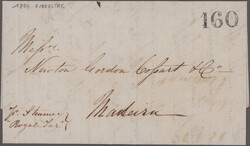 1854 - GIBRALTAR
160
Messrs.
Newton Gordon Cossart & Co
Madeira
Pr. Steamer
Royal Tar